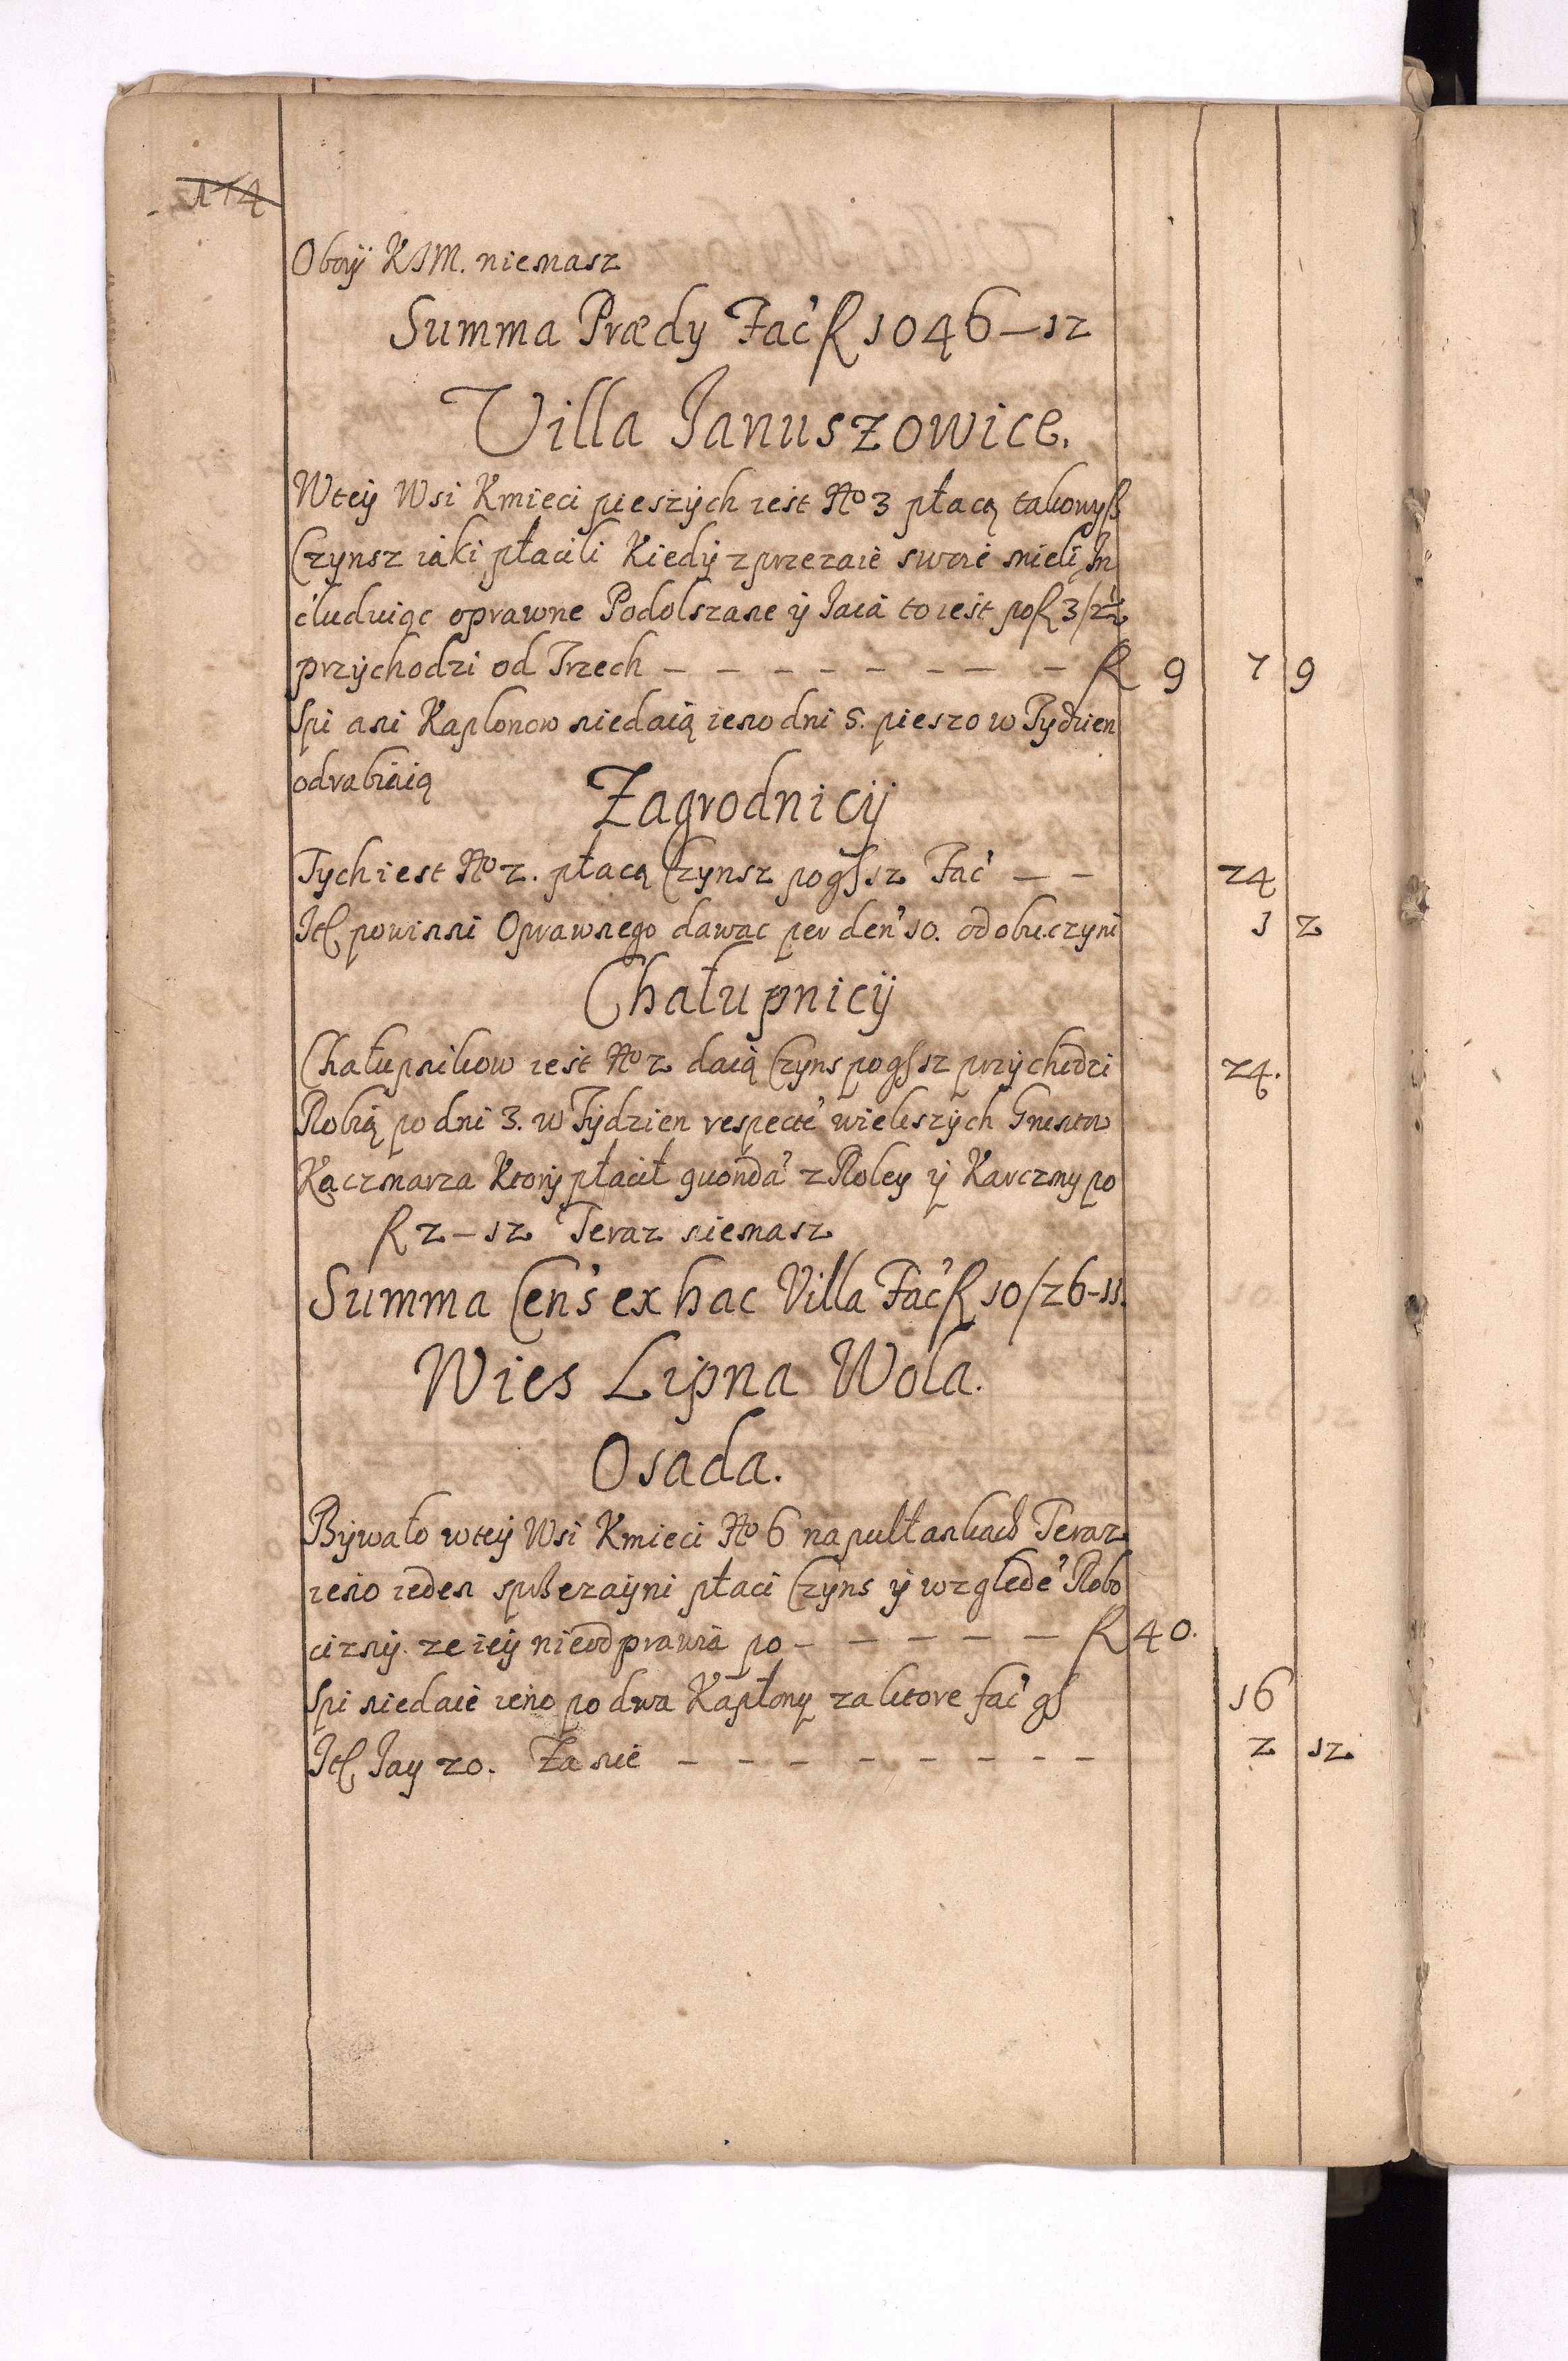 114
Obory KJM. niemasz
Summa Prædy Fac' R 1046–12
Villa Januszowice.
Wteÿ Wsi Kmieci pieszych iest No 3 płacą takowyß
Czynsz iaki płacili Kiedÿ zprzezaie swoie mieli, In
cluduiąc oprawne Podolszane ÿ Jaia to iest po R 3/2½
przÿchodzi od Trzech – – – – – – – – R 9 7 9
Spi ani Kaplonow niedaią ieno dni 5. pieszo w Tydzien
odrabiaią
Zagrodnicÿ
Tych iest No 2. płacą Czynsz po gß 12 Fac' – – 24
It. powinni Oprawnego dawac per den' 10. od obu czyni 1 2
Chałupnicÿ
Chałupnikow iest No 2 daią Czyns po gß 12 przychodzi 24.
Robią po dni 3. w Tÿdzien respecte' wiekszÿch Gruntow
Kaczmarza Ktorÿ płacił quonda' z Roley ÿ Karczmy po
R 2–12 Teraz niemasz
Summa Cens' ex hac Villa Fac' R 10/26–11.
Wies Lipna Wola.
Osada.
Bÿwało wteÿ Wsi Kmieci No 6 na pułłankach Teraz
ieno ieden spßezayni płaci Czyns ÿ wzglede' Robo
ciznÿ. ze ieÿ nieodprawia po – – – – – R 40.
Spi niedaie ieno po dwa Kapłony za ktore fac' gß 16
It. Jay 20. Za nie – – – – – – – – 2 12.